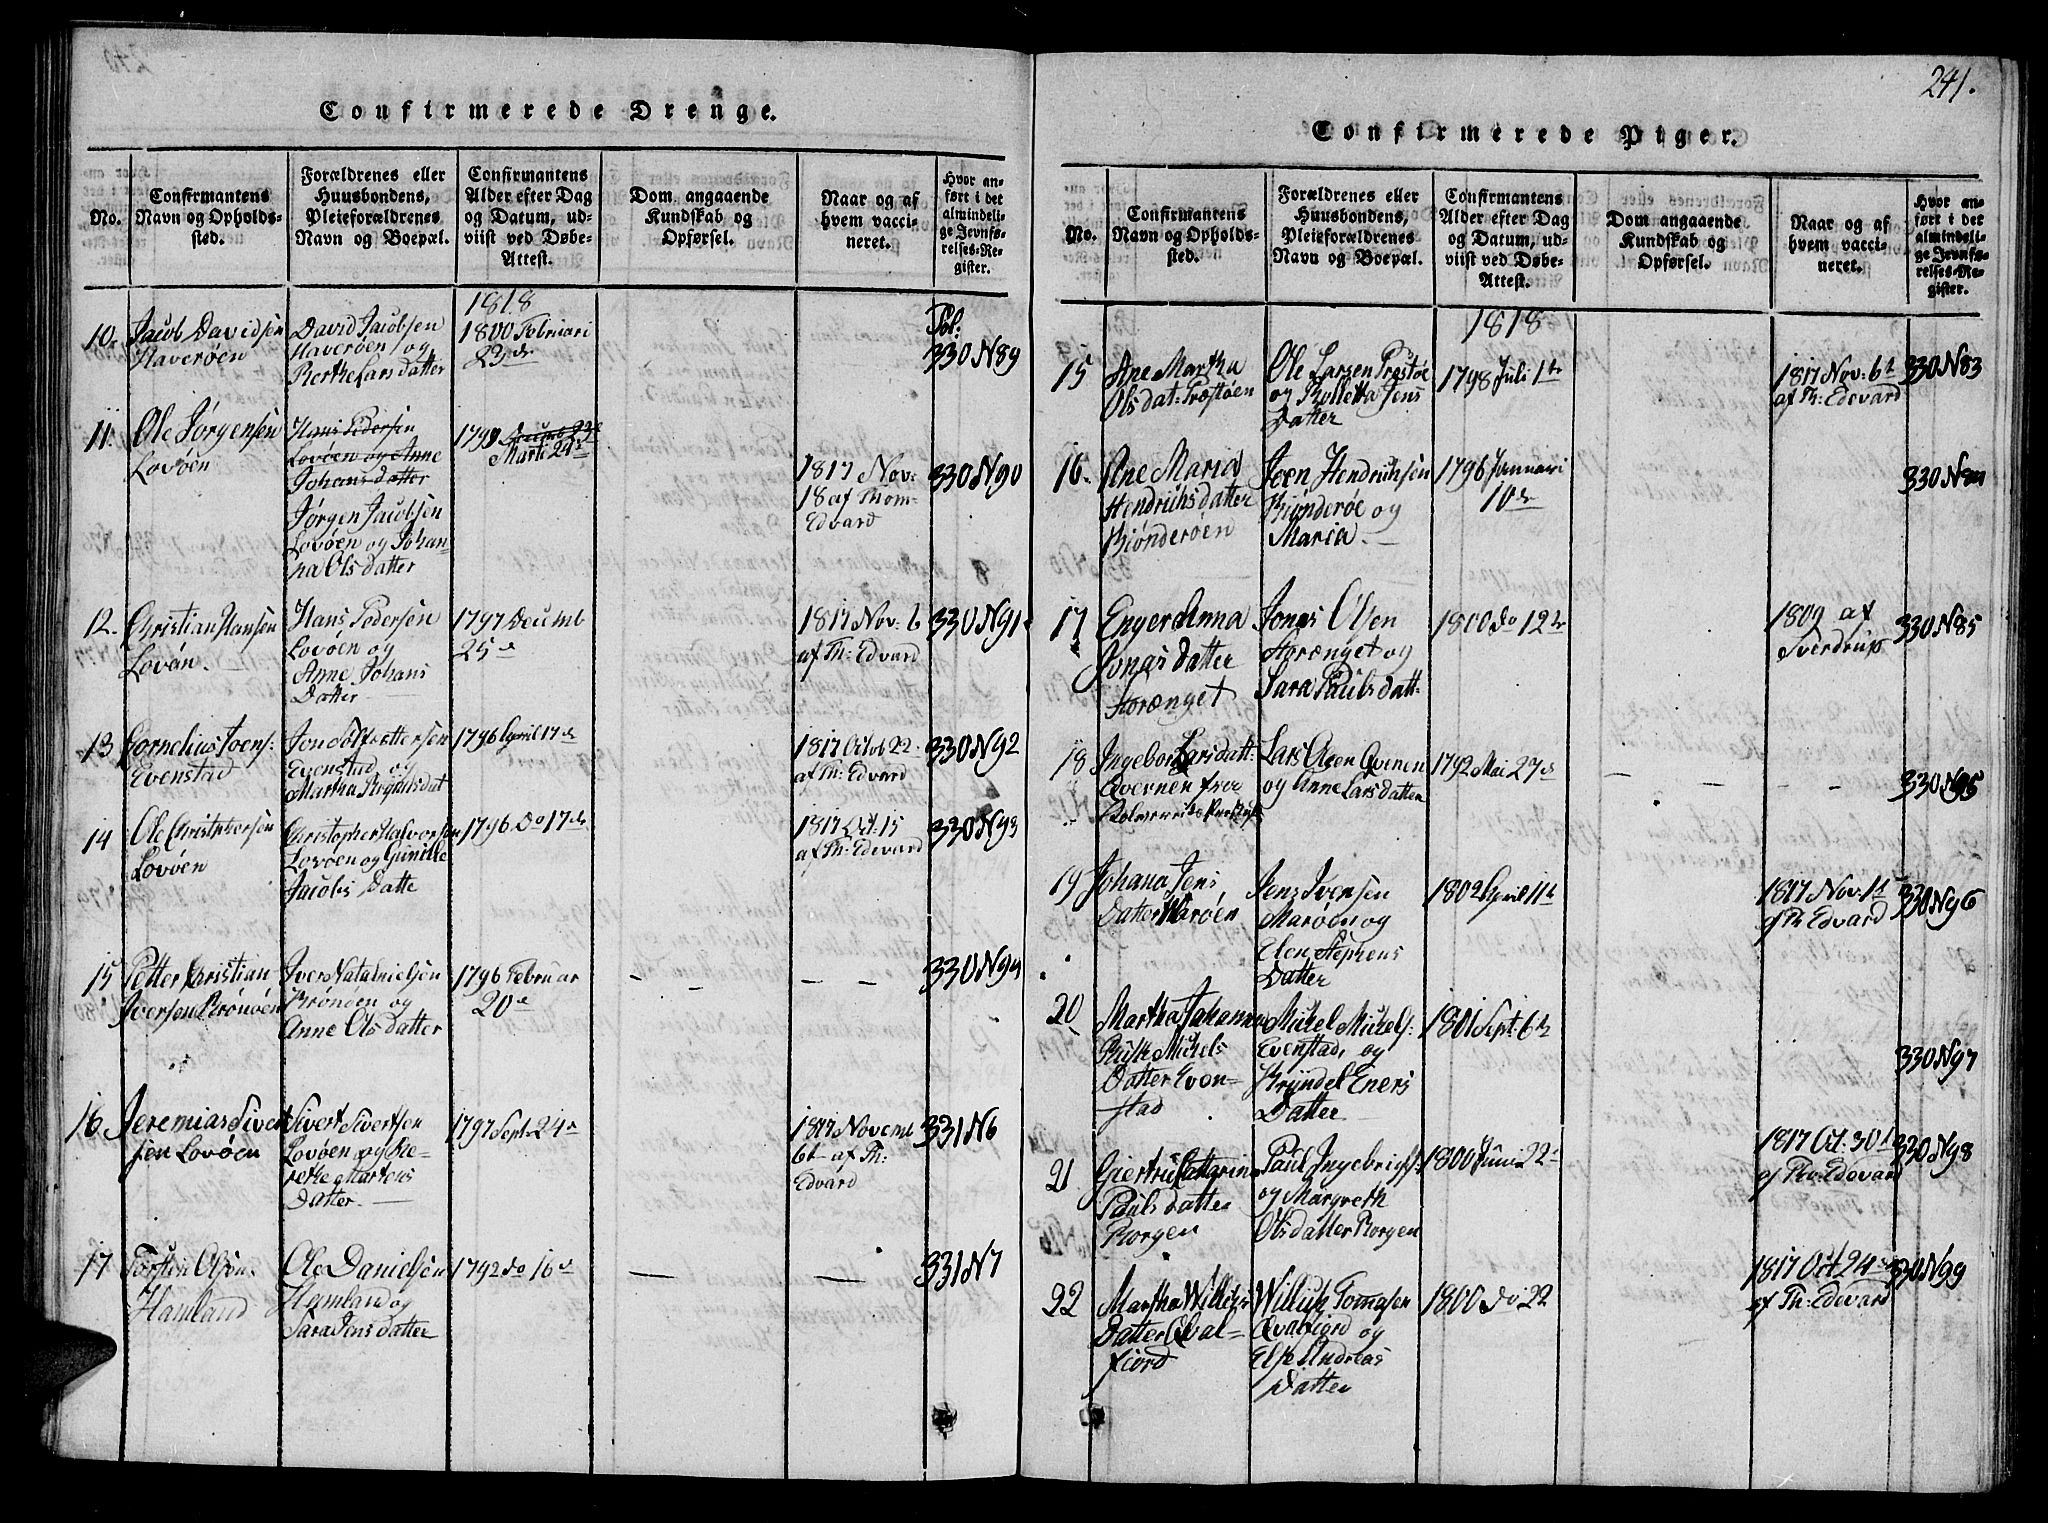 Confirmerede Drenge.
No.
Confirmantens
Navn og Opholds-
sted.
Forældrenes eller
Huusbondens,
Pleieforældrenes
Navn og Boepæl.
Confirmantens
Alder efter Dag
og Datum, ud-
viist ved Døbe-
Attest.
Dom angaaende
Kundskab og
Opførsel.
Naar og af
hvem vacci-
neret.
Hvor an-
ført i det
almindeli-
ge Jevnfø-
relses-Re-
gister.
1818
10.
Jacob Davidsen
Haverøen
David Jacobsen
Haverøen og
Berthe Lars datter
1800 Februari
23de
Fol:
330 N89
11.
Ole Jørgensen
Lovøen
Hans Pedersen
Lovøen og Anne
Johans datter
Jørgen Jacobsen
Lovøen og Johan-
na Ols datter
Marti 24de
1817 Nov:
18 af Thom-
Edvard
330 N90
12.
Christian Hansen
Lovøn.
Hans Pedersen
Lovøen og
Anne Johans
Datter
1797 Decemb
25de
1817 Nov: 6
af Th: Edvard
330 N91
13
Cornelius Joens:
Evenstad
Evenstad og
Martha
1796 April 17de
1817 Octob 22
af Th: Edvard
330 N92
14
Ole Christophersen
Lovøen
Christopher Halvorsen
Lovøen og Gunille
Jacobs Datte
1796 Do 17de
1817 Oct: 15
af Th: Edevard
330 N93
15
Petter Christian
Iversen Brønøen
Iver Natalnielsen
Brønøen og
Anne Ols datter
1796 Februar
20de
— — —
330 N94
16
Jeremias Siver
sen Lovøen
Sivert Sivertsen
Lovøen og Be-
rethe Martens
Datter
1797 Sept: 24de
1817 Novemb
6t af Th:
Edvard
331 N6
17
Torsten Olsøn
Hamland
Ole Danielsen
Hamland og
Sara Jens datter
1792 do 16de
— —
331 N7
241.
Confirmerede Piger.
No.
Confirmantens
Navn og Opholds-
sted.
Forældrenes eller
Huusbondens,
Pleieforældrenes
Navn og Boepæl.
Confirmantens
Alder efter Dag
og Datum, ud-
viist ved Døbe-
Attest.
Dom angaaende
Kundskab og
Opførsel.
Naar og af
hvem vacci-
neret.
Hvor an-
ført i det
almindeli-
ge Jevnfø-
relses-Re-
gister.
1818
15
Ane Martha
Olsdat: Præstøen
Ole Larsen Præstøe
og Jens
Datter
1798 Juli 1te
1817 Nov: 6t
af Th: Edevard
330 N83
16.
Ane Maria
Hendrichsdatter
Biønderøen
Joen Hendrichsen
Biønderøe og
Maria
1796 Januari
10de
330
17
Enger Anna
Jonas datter
Storænget
Jonas Olsen
Storænget og
Sara Paulsdatt-
1800 do 12te
1809 af
Sverdrup
330 N85
18
Ingebor Larsdatt:
Qvernen fra
Lars Qvenen
og Anne Lars datter
1792 Mai 27de
— — —
330 N95
19
Johana Jens
Datter Marøen
Jens Iversen
Marøen og
Elen Stephens
Datter
1802 April 11te
1817 Nov: 1t
af Th Edvard
330 N96
20
Martha Johanna
Michels
Datter Even-
stad
Michel Michels:
Evenstad, og
Bryndel Eners
Datter
1801 Sept: 6te
330 N97
21
Giertru Cattarina
Pauls datter
Borgen
Paul Ingebrigts:
og Margreth
Olsdatter Borgen
1800 Juni 22
1817 Oct: 30t
af Tho: Edevard
330 N98
22
Martha Willichs
Datter Qval-
fiord
Willich Tomasen
Qvalfiord og
Else Andreas
Datter
1800 do 22
1817 Oct 24
af Th: Edevard
330 N99